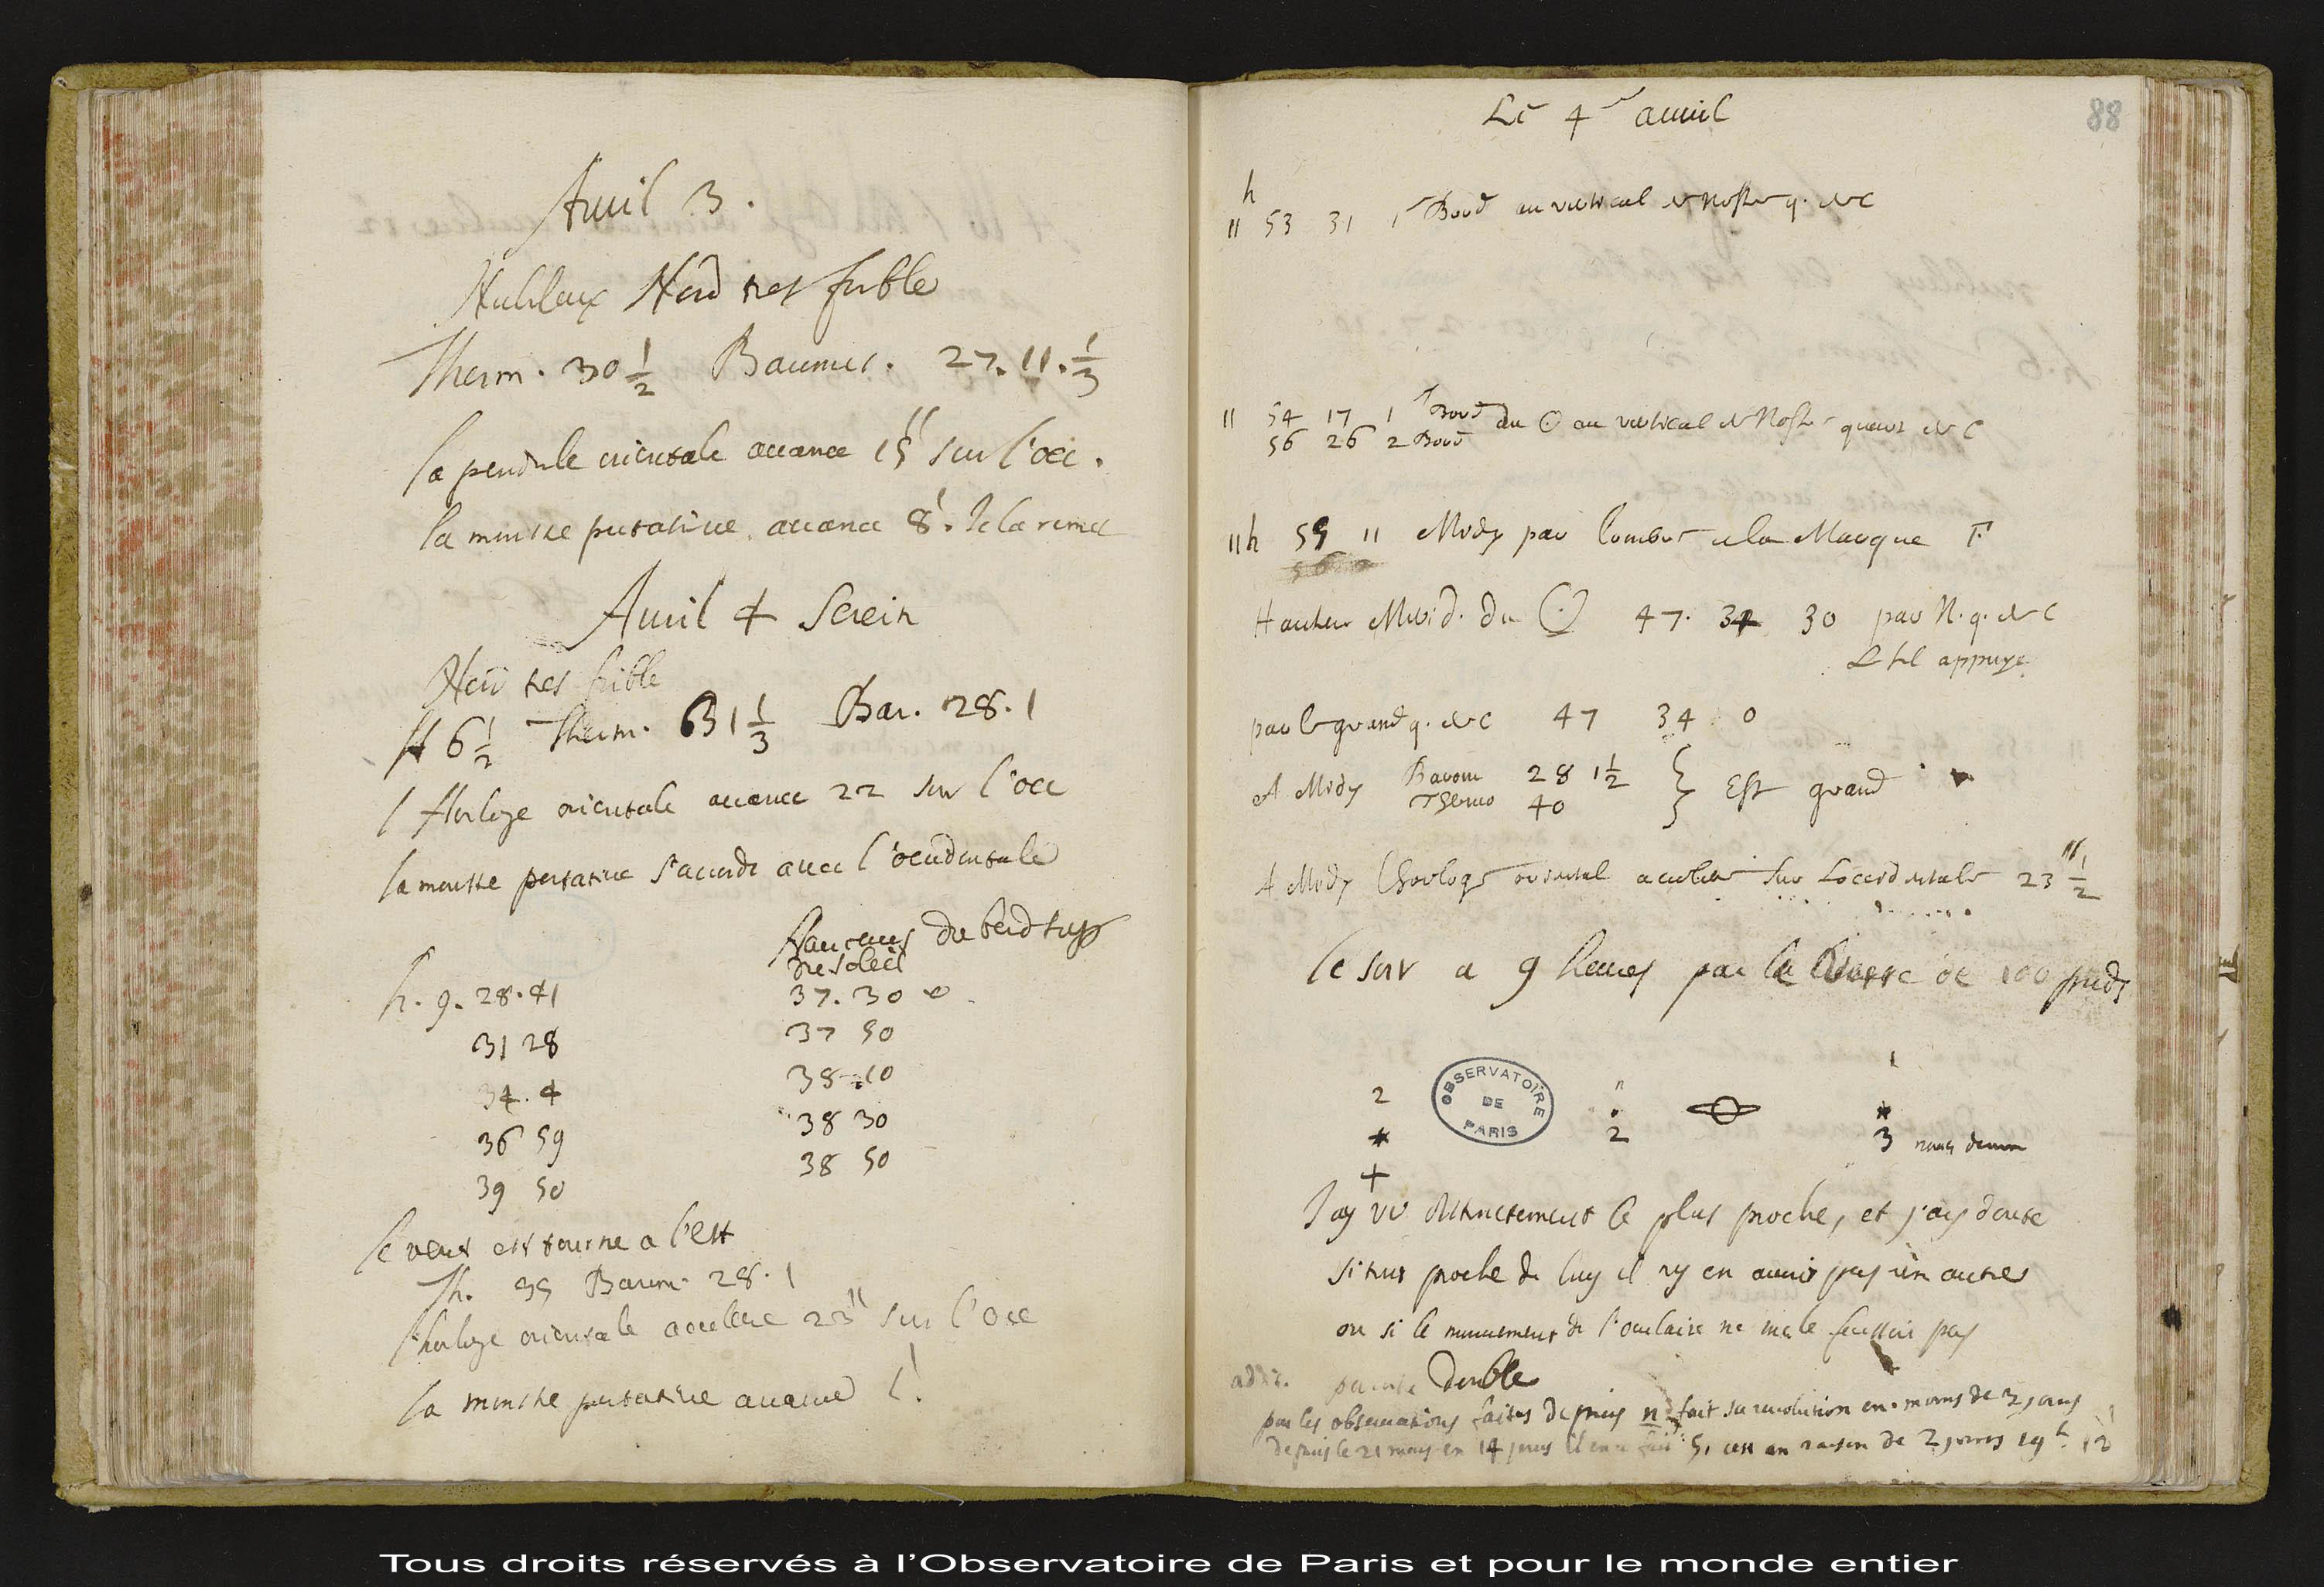 Auril 3.
Nubileux Nord tres foible
Therm. 30 1/2 Baromet. 27. 11. 1/3
la pendule orientale auance 15" sur l'occ.
la montre portatiue auance 8'. Je la remet
Auril 4 Serein
Nord tres foible
H 6 1/2 Therm. 31 1/3 Bar. 28. 1
l'Horloge orientale auance 22 sur l'occ
la montre portatiue s'accorde auec l'occidentale
Hauteurs du bord sup
du soleil
h. 9. 28. 41 37. 30 0
31 28 37 50
34. 4 38 10
36 59 38 30
39 50 38 50
le vent est tourne a l'est
Th. 35 Barom. 28. 1
l'horloge orientale accelere 23" sur l'occ
la montre portatiue auance 1'
88
Le 4e auuril
h
11 53 31 1r Bord au vertical de Nostre q. de C
11 54 17 1r Bord du ☉ au vertical de Nostre quart de C
56 26 2 Bord
11h 59 11 Midy par l'ombre a la Marque F
Hauteur Merid. du ☉ 47. 34 30 par N. q. de C
Le fil appuyé
par le grand q. de C 47 34 0
A Midy Barom 28 1 1/2 } Est grand
Thermo 40
A Midy l'horloge oriental accelere sur Loccidentale 23" 1/2
le soir a 9 heures par le Verre de 100 pieds
1
2 n
2 3
J'ay vu distinctement le plus proche, et j'ay doute
si tres proche de luy il ny en auoit pas un autre
ou si le mouuement de l'oculaire ne me le faisoit pas
addit. paroitre double
par les obseruations faites depuis n fait sa reuolution en moins de 3 jours
depuis le 21 mars en 14 jours il en a fait 5, cest en raison de 2 jours 19h. 12'
OBSERVATOIRE
DE
PARIS
Tous droits réservés à l'Observatoire de Paris et pour le monde entier